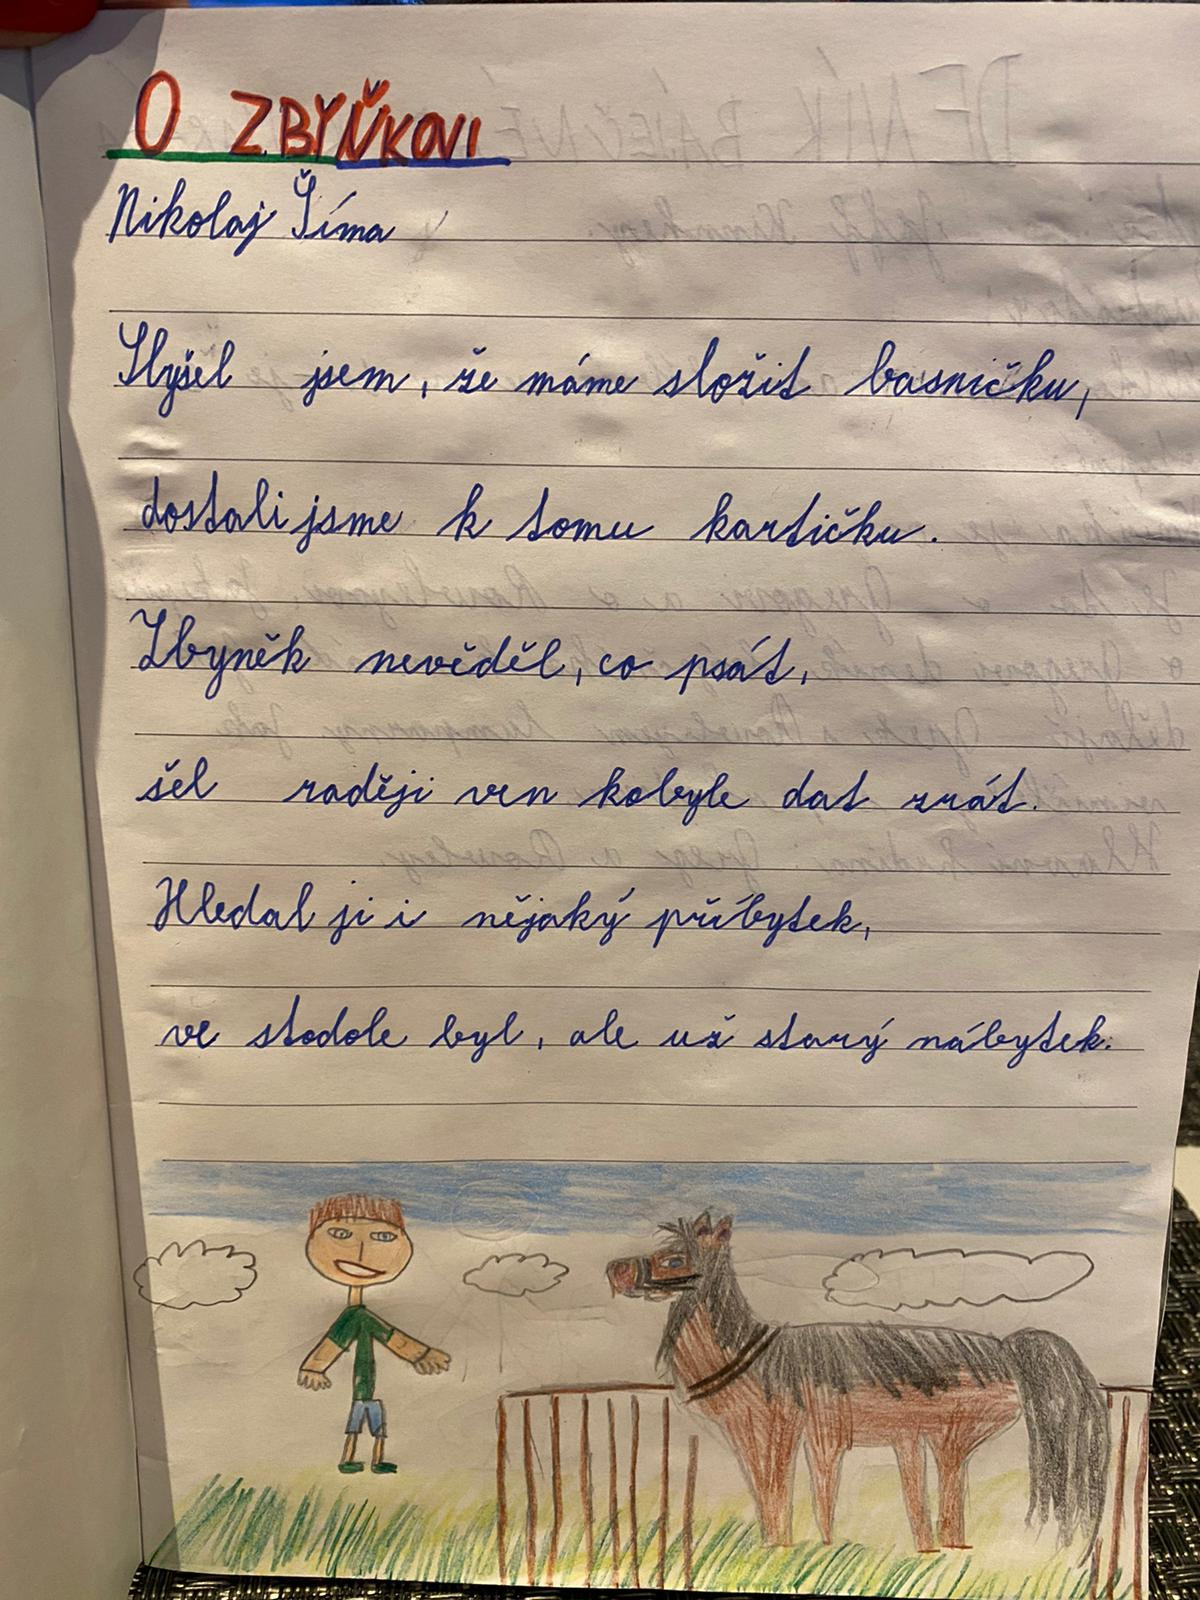 O ZBYŇKOVI
Nikolaj Šíma
Slyšel jsem, že máme složit basničku,
dostali jsme k tomu kartičku.
Zbyněk nevěděl, co psát,
šel raději ven kobyle dat zrát.
Hledal ji i nějaký příbytek,
ve stodole byl, ale už starý nábytek.